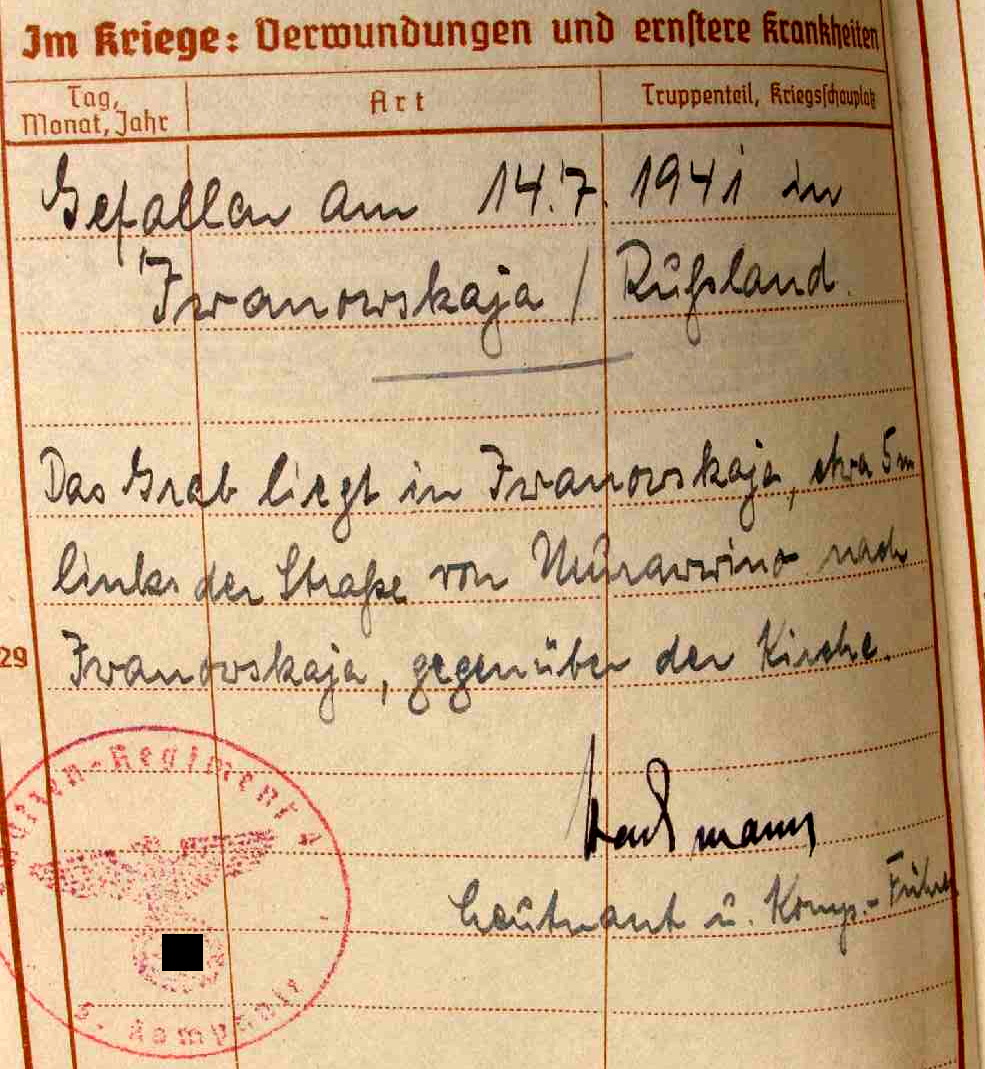 Im Kriege: Verwundungen und ernstere Krankheiten
Tag, Monat, Jahr
Art
Truppenteil, Kriegsschauplatz
Gefallen am 14.7.1941 in
Iwanowskaja / Rußland.
Das Grab liegt in Iwanowskaja, etwa 5 m
links der Straße von Murawino nach
29
Iwanowskaja, gegenüber der Kirche.
-Regiment 4
Leutnant u. Komp.-Führer
Kompanie